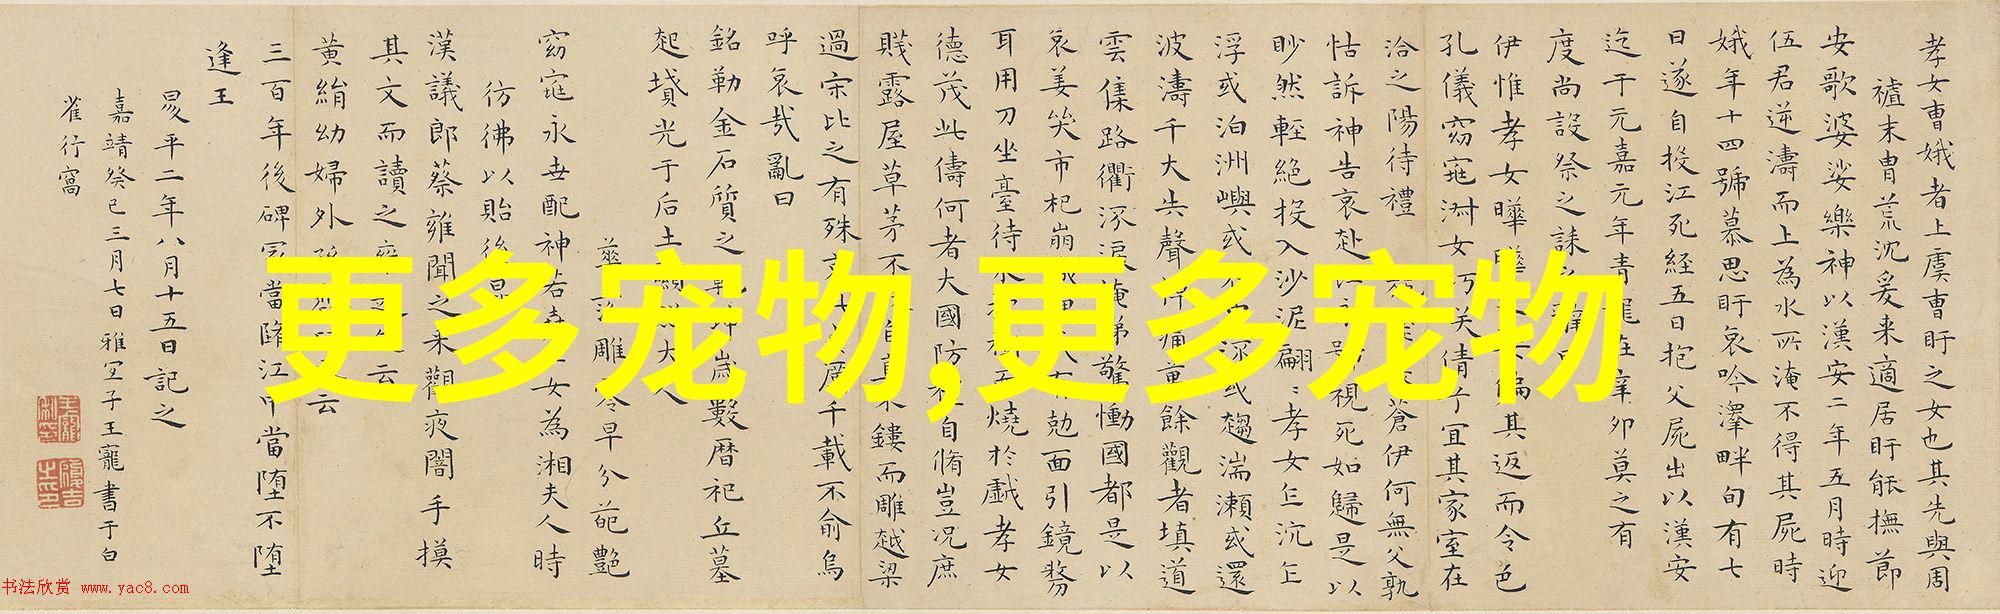 孝女曹娥者上虞曹盱之女也其先與周
禮末胄荒沈爰来適居盱能撫節
安歌婆娑樂神以漢安二年五月時迎
伍君逆濤而上為水所淹不得其屍時
娥年十四號慕思盱哀吟澤畔旬有七
日遂自投江死經五日抱父屍出以漢安
迄于元嘉元年青龍在辛卯莫之有
度尚設祭之誄之辭曰
伊惟孝女曄曄之姿偏其返而令色
孔儀窈窕淑女巧笑倩兮宜其家室在
洽之陽待禮蒼伊何無父孰
怙訴神告哀赴江永號視死如歸是以
眇然輕絕投入沙泥翩〻孝女乍沉乍
浮或泊洲嶼或或趨湍瀨或還
波濤千夫失聲悼痛萬餘觀者填道
雲集路衢泣淚掩涕驚慟國都是以
哀姜哭市杞崩城隅或有剋面引鏡剺
耳用刀坐臺待水抱樹而燒於戲孝女
德茂此儔何者大國防禮自脩豈況庶
賤露屋草茅不扶自直不鏤而雕越梁
過宋比之有殊千載不俞烏
呼哀哉亂曰
銘勒金石質之乾坤歲數曆祀丘墓
起墳光于后土顯照夫人
葩艷
窈窕永世配神若堯二女為湘夫人時
彷彿以貽後昆
漢議郎蔡雍聞之来觀夜闇手摸
其文而讀之雍題文云
黃絹幼婦外孫韲臼又云
三百年後碑冢當墮江中當墮不墮
逢王
昇平二年八月十五日記之
嘉靖癸巳三月七日雅宜子王寵書于白
雀行窩
更多宠物,更多宠物
书法欣赏 www.yac8.com